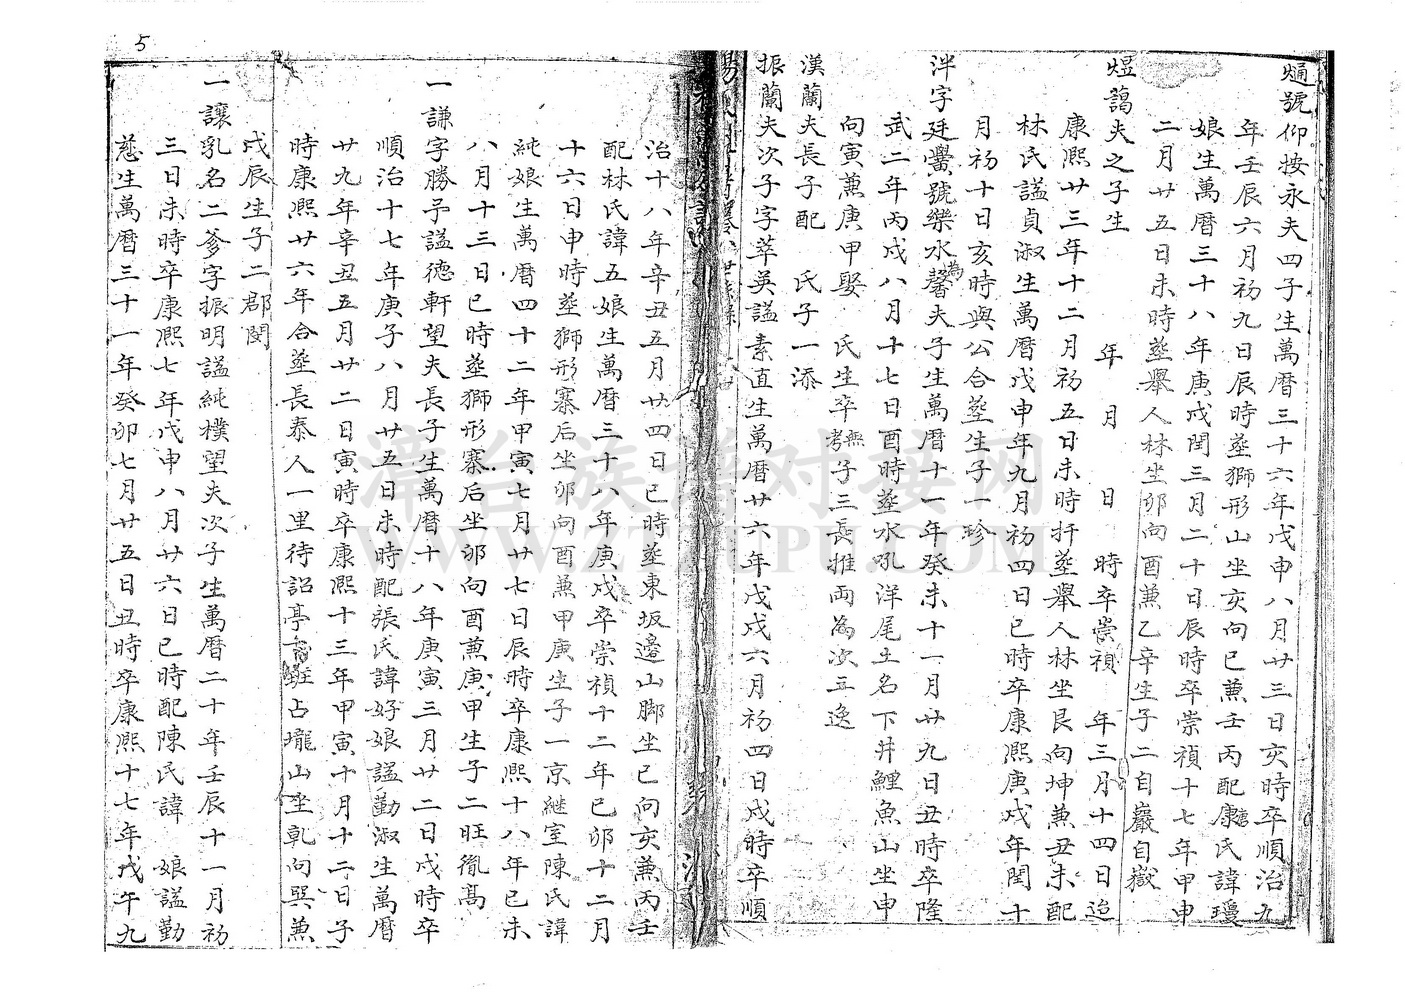 熥號仰按永夫四子生萬曆三十六年戊申八月廿三日亥時卒順治九
年壬辰六月初九日辰時塟獅形山坐亥向巳兼壬丙配康氏諱瓊
娘生萬曆三十八年庚戌閏三月二十日辰時卒崇禎十七年甲申
二月廿五日未時塟舉人林坐卯向酉兼乙辛生子二自巖自嶽
煜藹夫之子生 年 月 日 時卒崇禎 年三月十四日迨
康熙廿三年十二月初五日未時扞塟舉人林坐艮向坤兼丑未配
林氏謚貞淑生萬曆戊申年九月初四日巳時卒康熙庚戌年閏十
月初十日亥時與公合塟生子一珍
泮字廷黌號樂水馨夫子生萬曆十一年癸未十一月廿九日丑時卒隆
為
武二年丙戌八月十七日酉時塟水吼洋尾土名下井鯉魚山坐申
向寅兼庚甲娶 氏生卒無考子三長推両為次五逸
漢蘭夫長子配 氏子一添
振蘭夫次子字萃英謚素直生萬曆廿六年戊戌六月初四日戌時卒順
治十八年辛丑五月廿四日巳時塟東坂邊山脚坐巳向亥兼丙壬
配林氏諱五娘生萬曆三十八年庚戌卒崇禎十二年巳卯十二月
十六日申時塟獅形寨后坐卯向酉兼甲庚生子一京継室陳氏諱
純娘生萬曆四十二年甲寅七月廿七日辰時卒康熙十八年已未
八月十三日巳時塟獅形寨后坐卯向酉兼庚甲生子二旺胤髙
一謙字勝予謚德軒望夫長子生萬曆十八年庚寅三月廿二日戌時卒
順治十七年庚子八月廿五日未時配張氏諱好娘謚勤淑生萬曆
廿九年辛丑五月廿二日寅時卒康熙十三年甲寅十月十二日子
時康熙廿六年合塟長泰人一里待詔亭占壠山坐乹向巽兼
戌辰生子二郡閔
一讓乳名二爹字振明謚純樸望夫次子生萬曆二十年壬辰十一月初
三日未時卒康熙七年戊申八月廿六日巳時配陳氏諱 娘謚勤
慈生萬曆三十一年癸卯七月廿五日丑時卒康熙十七年戊午九
5
漳台族谱对接网
WWW.ZTZUPU.COM